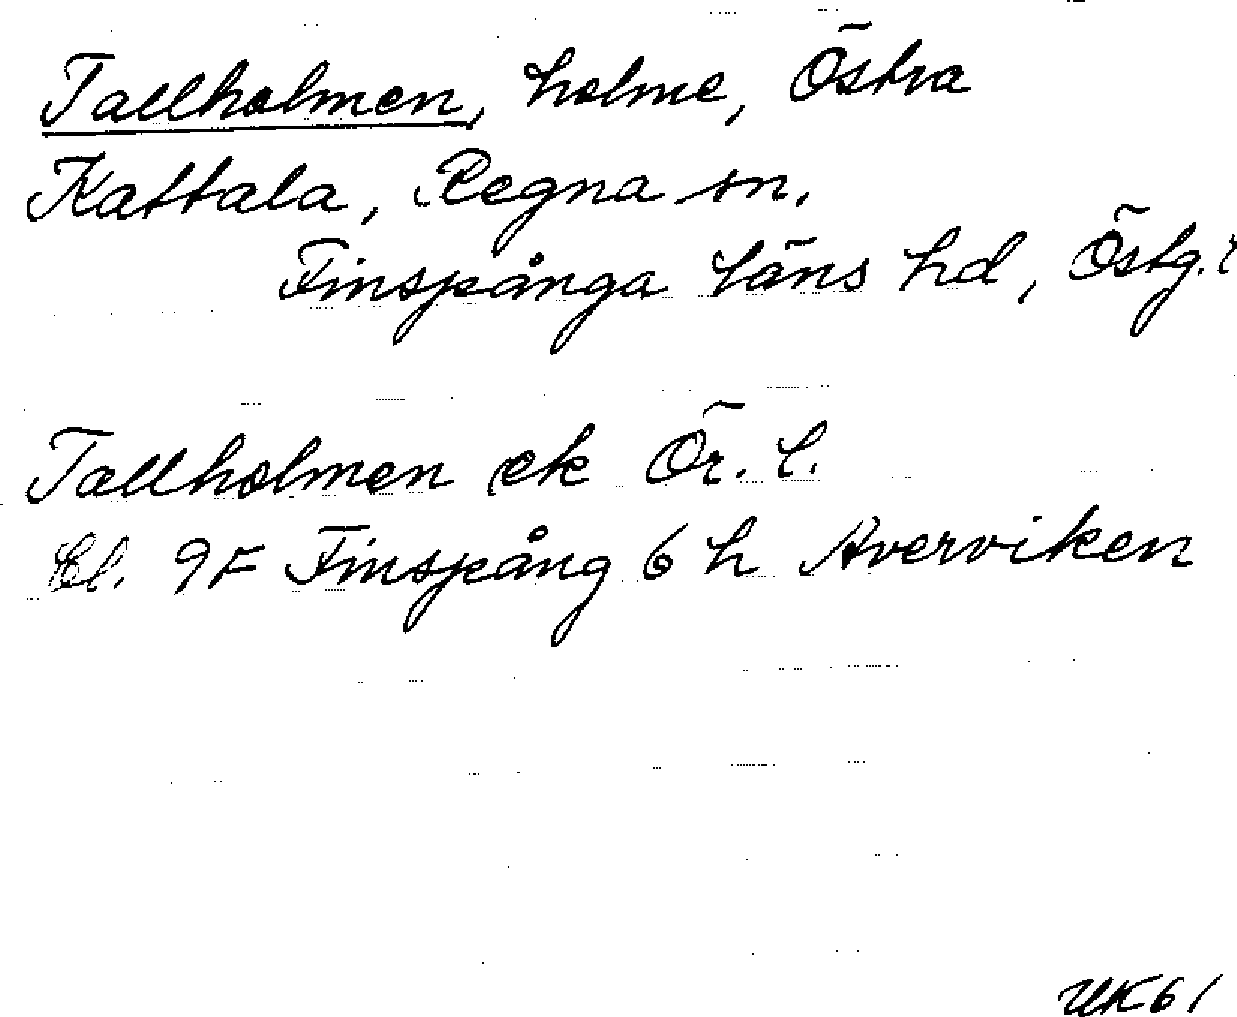 Tallholmen, holme, Östra
Kattala, Regna sn.
Finspånga läns hd, Östg.
Tallholmen ek Ör. l.
Bl. 9F Finspång 6 h Averviken
UK61